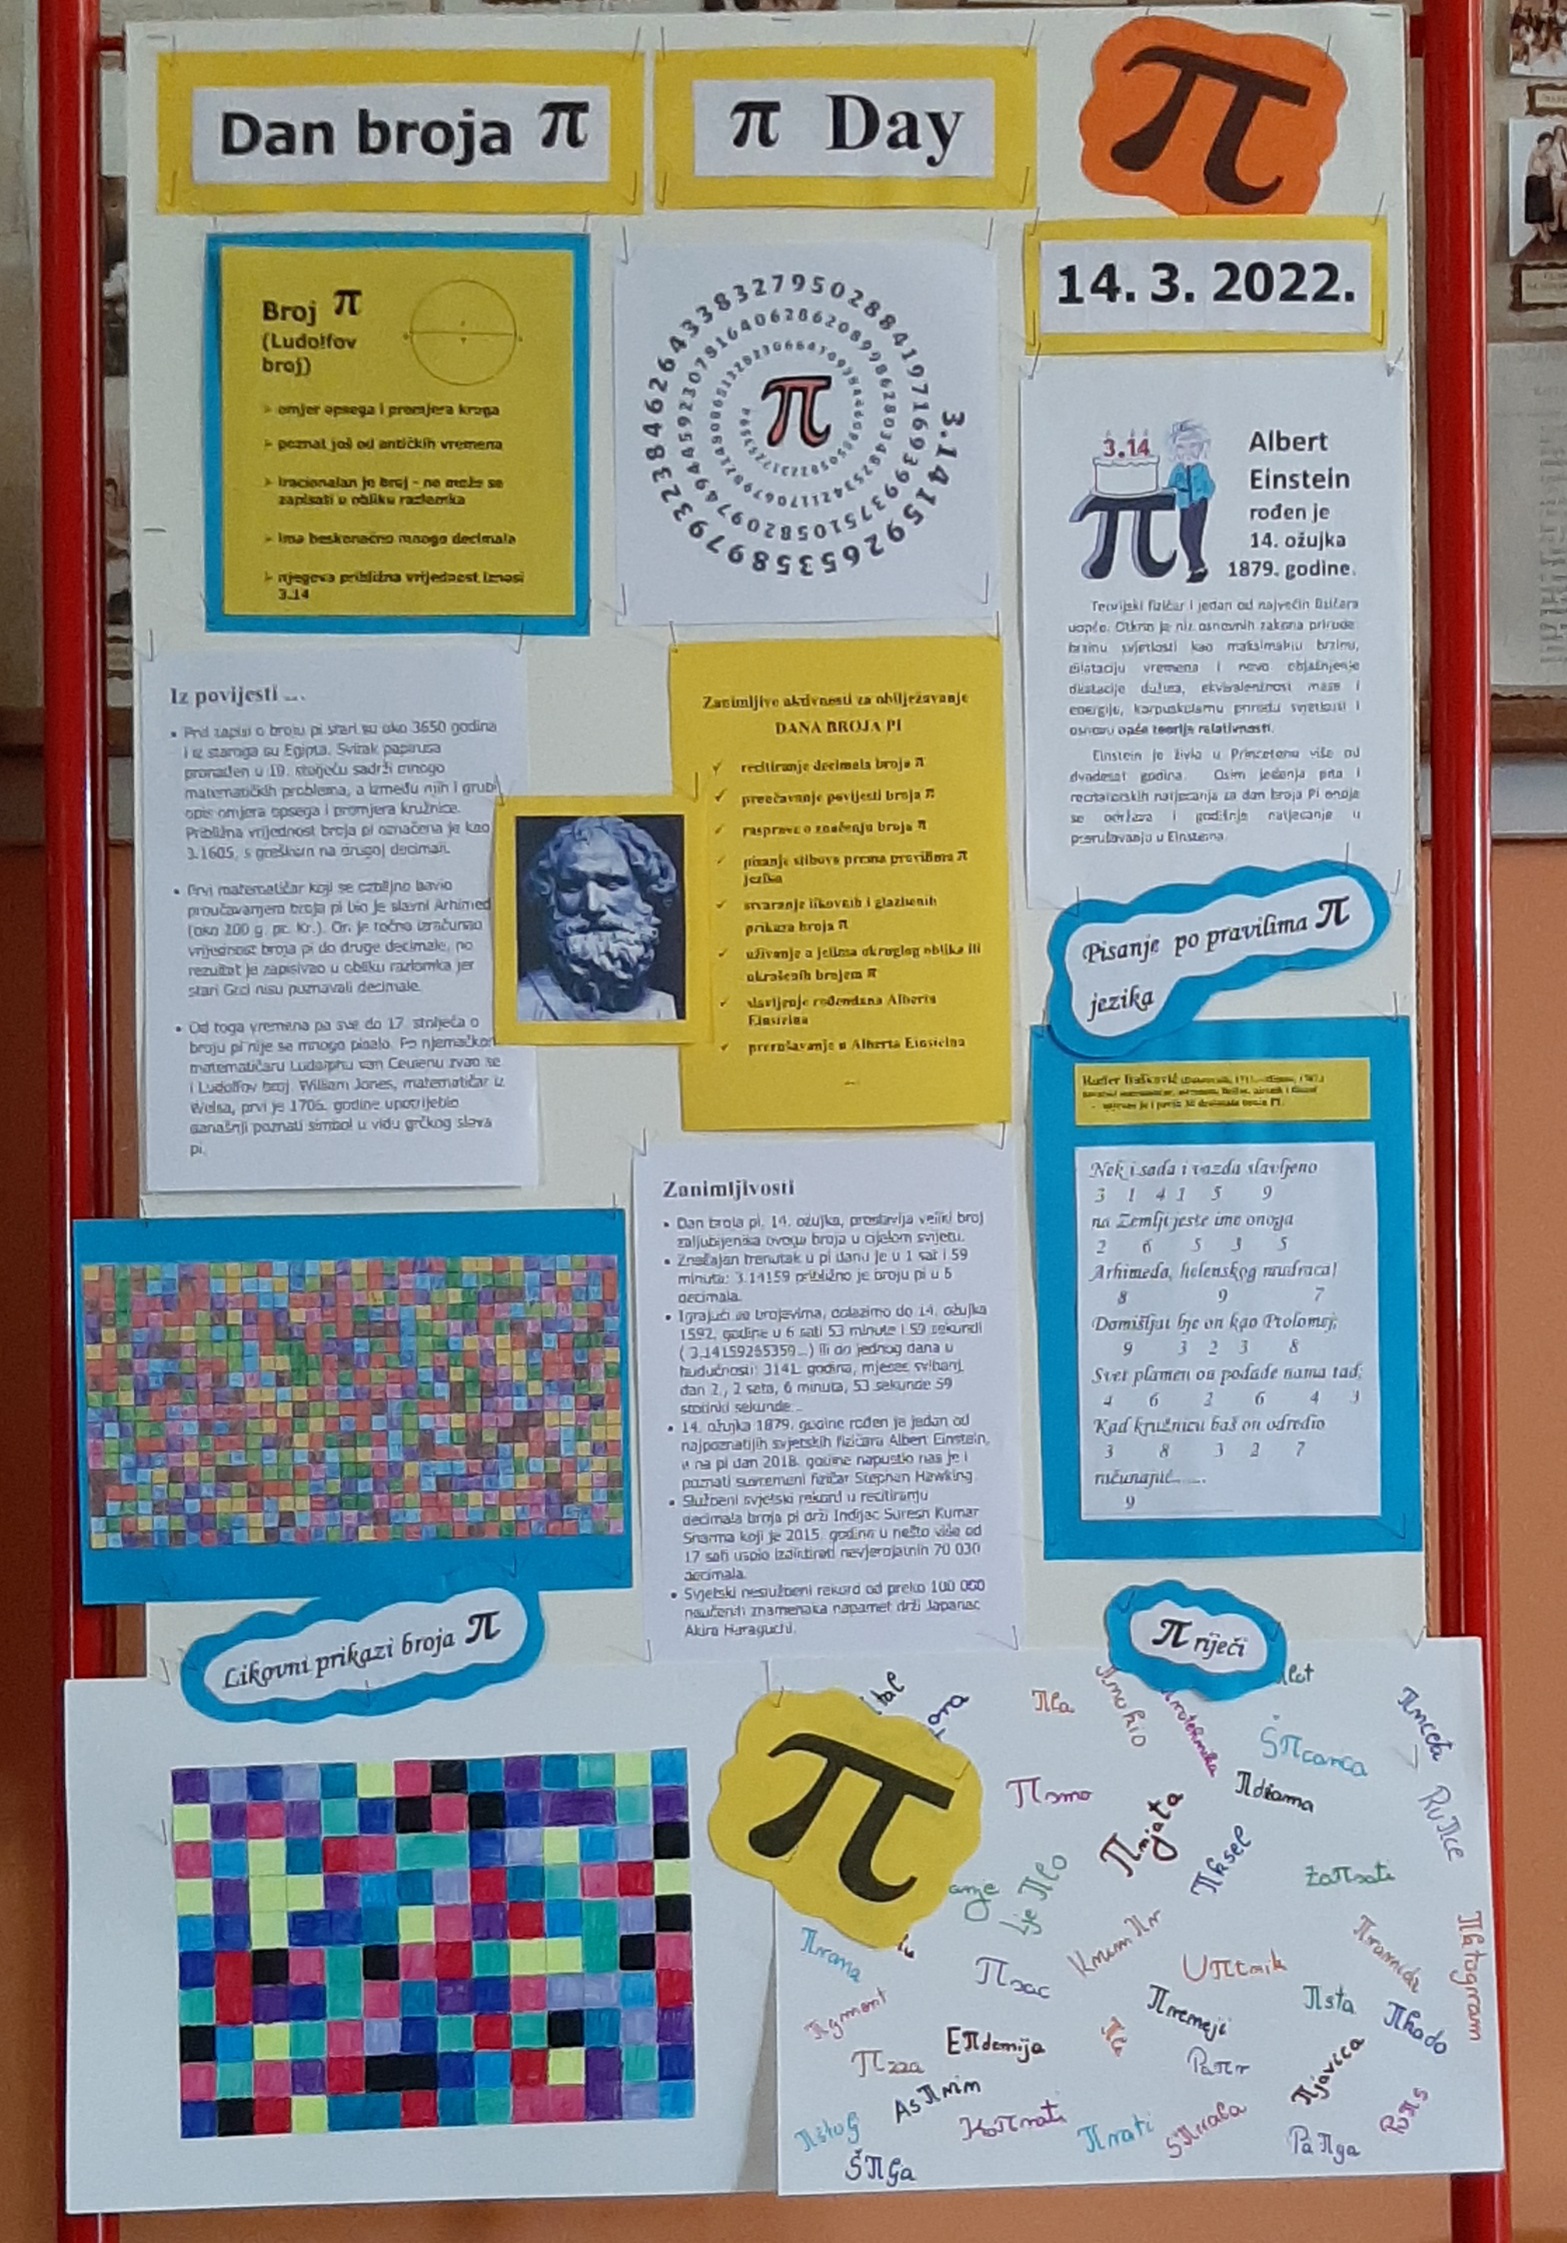 Dan broja π
π Day
π
14. 3. 2022.
Broj π
(Ludolfov
broj)
omjer opsega i promjera kruga
poznat još od antičkih vremena
iracionalan je broj - ne može se
zapisati u obliku razlomka
ima beskonačno mnogo decimala
njegova približna vrijednost iznosi
3.14
3.1415926535897932384626433832795028841971693993751058209749445923078164062862089986280348253421170679
π
3.14
π
Albert
Einstein
rođen je
14. ožujka
1879. godine.
Teorijski fizičar i jedan od najvećih fizičara
uopće. Otkrio je niz osnovnih zakona prirode
brzinu svjetlosti kao maksimalnu brzinu,
dilataciju vremena i novo objašnjenje
dilatacije dužina, ekvivalentnost mase i
energije, korpuskularnu prirodu svjetlosti i
osnovu opće teorije relativnosti.
Einstein je živio u Princetonu više od
dvadeset godina. Osim jedenja pita i
recitatorskih natjecanja za dan broja Pi ondje
se održava i godišnje natjecanje u
prerušavanju u Einsteina.
Iz povijesti ...
Prvi zapisi o broju pi stari su oko 3650 godina
i iz staroga su Egipta. Svitak papirusa
pronađen u 19. stoljeću sadrži mnogo
matematičkih problema, a između njih i grubi
opis omjera opsega i promjera kružnice.
Približna vrijednost broja pi označena je kao
3.1605, s greškom na drugoj decimali.
Prvi matematičar koji se ozbiljno bavio
proučavanjem broja pi bio je slavni Arhimed
(oko 200 g. pr. Kr.). On je točno izračunao
vrijednost broja pi do druge decimale, no
rezultat je zapisivao u obliku razlomka jer
stari Grci nisu poznavali decimale.
Od toga vremena pa sve do 17. stoljeća o
broju pi nije se mnogo pisalo. Po njemačkom
matematičaru Ludolphu van Ceulenu zvao se
i Ludolfov broj. William Jones, matematičar iz
Welsa, prvi je 1706. godine upotrijebio
današnji poznati simbol u vidu grčkog slova
pi.
Zanimljive aktivnosti za obilježavanje
DANA BROJA PI
recitiranje decimala broja π
proučavanje povijesti broja π
rasprave o značenju broja π
pisanje stihova prema pravilima π
jezika
stvaranje likovnih i glazbenih
prikaza broja π
uživanje u jelima okruglog oblika ili
ukrašenih brojem π
slavljenje rođendana Alberta
Einsteina
prerušavanje u Alberta Einsteina
Pisanje po pravilima π
jezika
Ruđer Bošković
Nek i sada i vazda slavljeno
3 1 4 1 5 9
na Zemlji jeste ime onoga
2 6 5 3 5
Arhimeda, helenskog mudraca!
8 9 7
Domišljat bje on kao Ptolomej;
9 3 2 3 8
Svet plamen on podade nama tad;
4 6 2 6 4 3
Kad kružnicu baš on odredio
3 8 3 2 7
računajić......
9
Zanimljivosti
Dan broja pi, 14. ožujka, proslavlja veliki broj
zaljubljenika ovoga broja u cijelom svijetu.
Značajan trenutak u pi danu je u 1 sat i 59
minuta: 3.14159 približno je broju pi u 5
decimala.
Igrajući se brojevima, dolazimo do 14. ožujka
1592. godine u 6 sati 53 minute i 59 sekundi
( 3.14159265359...) ili do jednog dana u
budućnosti: 3141. godina, mjesec svibanj,
dan 2., 2 sata, 6 minuta, 53 sekunde 59
stotinki sekunde...
14. ožujka 1879. godine rođen je jedan od
najpoznatijih svjetskih fizičara Albert Einstein,
a na pi dan 2018. godine napustio nas je i
poznati suvremeni fizičar Stephen Hawking.
Službeni svjetski rekord u recitiranju
decimala broja pi drži Indijac Suresh Kumar
Sharma koji je 2015. godine u nešto više od
17 sati uspio izdiktirati nevjerojatnih 70 030
decimala.
Svjetski neslužbeni rekord od preko 100 000
naučenih znamenaka napamet drži Japanac
Akira Haraguchi.
Likovni prikazi broja π
π riječi
π
πla
πnceta
Šπcanca
πsmo
πdžama
πnjata
πksel
Ruπce
Žaπsati
ljeπlo
πrana
πsac
Uπtnik
πramida
πktogram
πgment
πremeji
πsta
πkado
πzza
Eπdemija
Paπr
πjavica
Asπrin
πštolj
Koπrati
πrati
Sπrala
Paπga
Šπlja